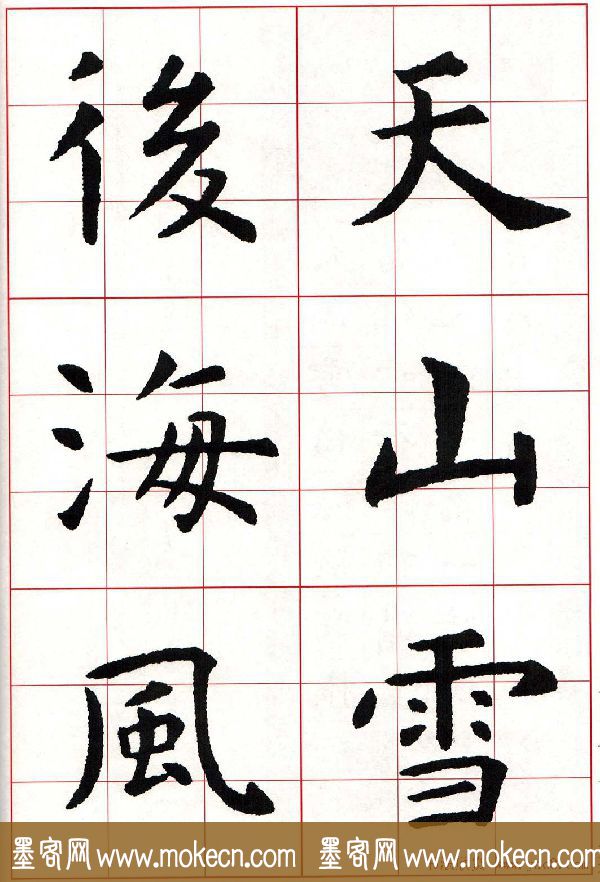 天山雪
後海風
墨客网 www.mokecn.com 墨客网 www.mokecn.com